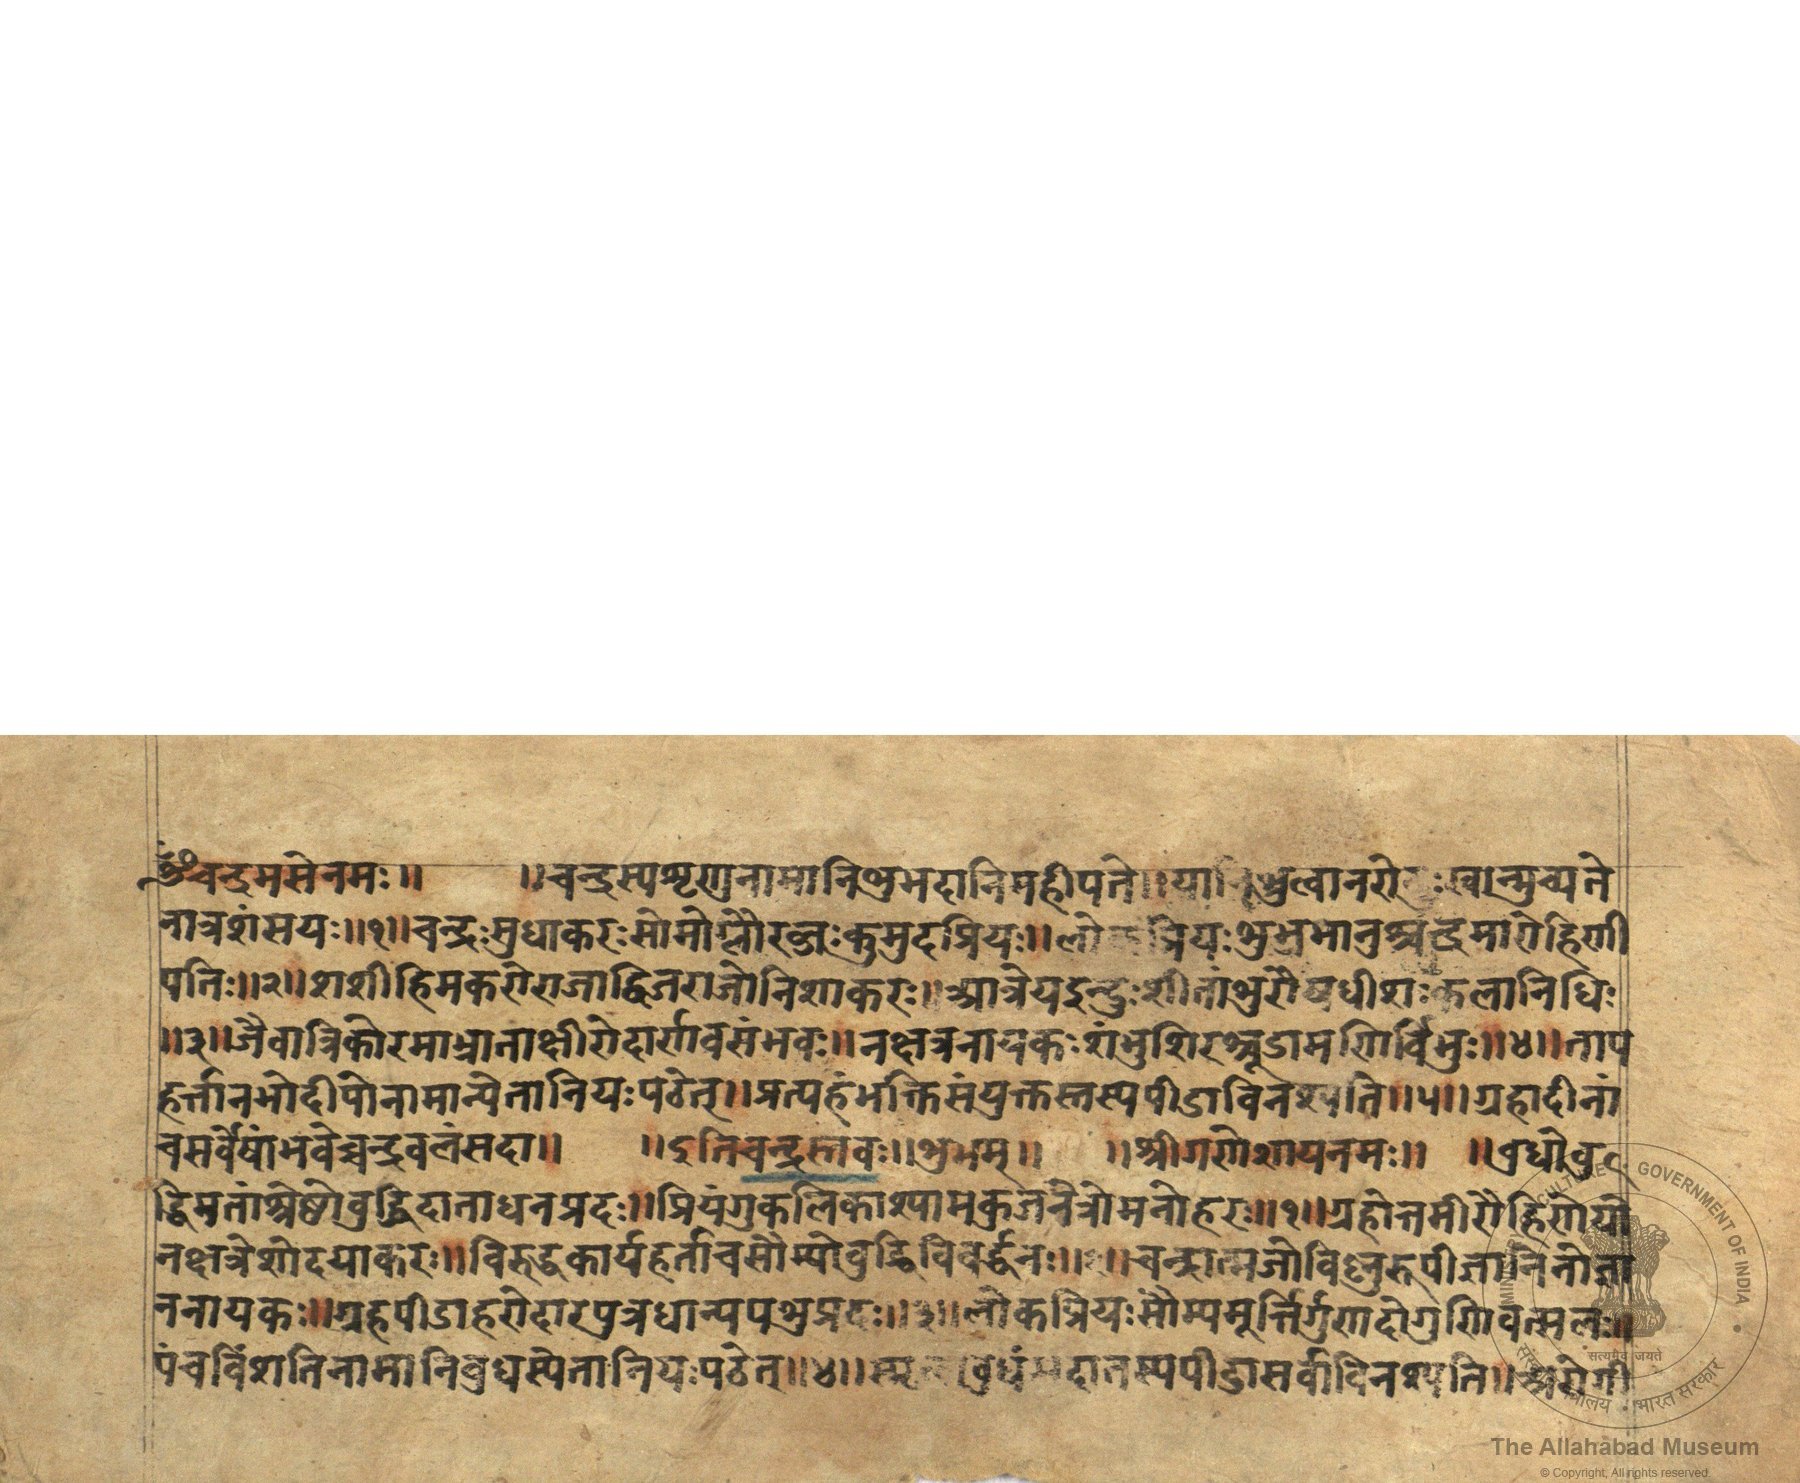 ॐचन्द्रमसेनमः॥ ॥चन्द्रस्यशृणुनामानिशुभदानिमहीपते॥यानिश्रुत्वानरोदुःखान्मुच्यते
नात्रशंसयः॥१॥चन्द्रःसुधाकरःसोमोग्लौरब्जःकुमुदप्रियः॥लोकप्रियःशुभ्रभानुश्चन्द्रमारोहिणी
पतिः॥२॥शशीहिमकरोराजाद्विजराजोनिशाकरः॥आत्रेयइन्दुःशीतांशुरौषधीशःकलानिधिः
॥३॥जैवात्रिकोरमाभ्राताक्षीरोदार्णवसंभवः॥नक्षत्रनायकःशंभुशिरश्चूडामणिर्विभुः॥४॥ताप
हर्त्तानभोदीपोनामान्येतानियःपठेत्॥प्रत्यहंभक्तिसंयुक्तस्तस्यपीडाविनश्यति॥५॥ग्रहादीनां
चसर्वेषांभवेच्चन्द्रवलंसदा॥ ॥इतिचन्द्रस्तवः॥शुभम्॥ ॥श्रीगणेशायनमः॥ ॥वुधोवु
द्धिमतांश्रेष्ठोवुद्धिदाताधनप्रदः॥प्रियंगुकलिकाश्यामकुजनेत्रोमनोहरः॥१॥ग्रहोत्तमोरौहिणेयो
नक्षत्रेशोदयाकरः॥विरुद्धकार्यहर्ताचसौम्योवुद्धिविवर्द्धनः॥२॥चन्द्रात्मजोविष्णुरूपीज्ञानिनोज्ञा
ननायकः॥ग्रहपीडाहरोदारपुत्रधान्यपशुप्रदः॥३॥लोकप्रियःसौम्यमूर्त्तिर्गुणदोगुणिवत्सलः॥
पंचविंशतिनामानिवुधस्येतानियःपठेत्॥४॥ वुधं तस्यपीडासर्वाविनश्यति॥अरोगी
MINISTRY OF CULTURE • GOVERNMENT OF INDIA •
सत्यमेव जयते
संस्कृति मंत्रालय • भारत सरकार
The Allahabad Museum
© Copyright, All rights reserved.